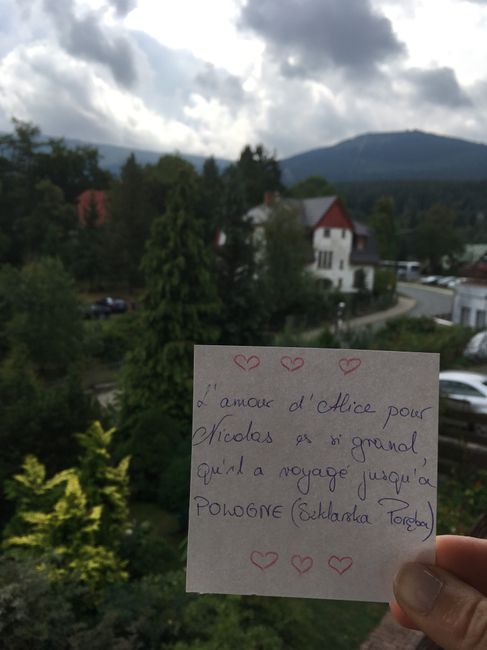 L'amour d'Alice pour
Nicolas es si grand,
qu'il a voyagé jusqu'a
POLOGNE (Szklarska Poręba)